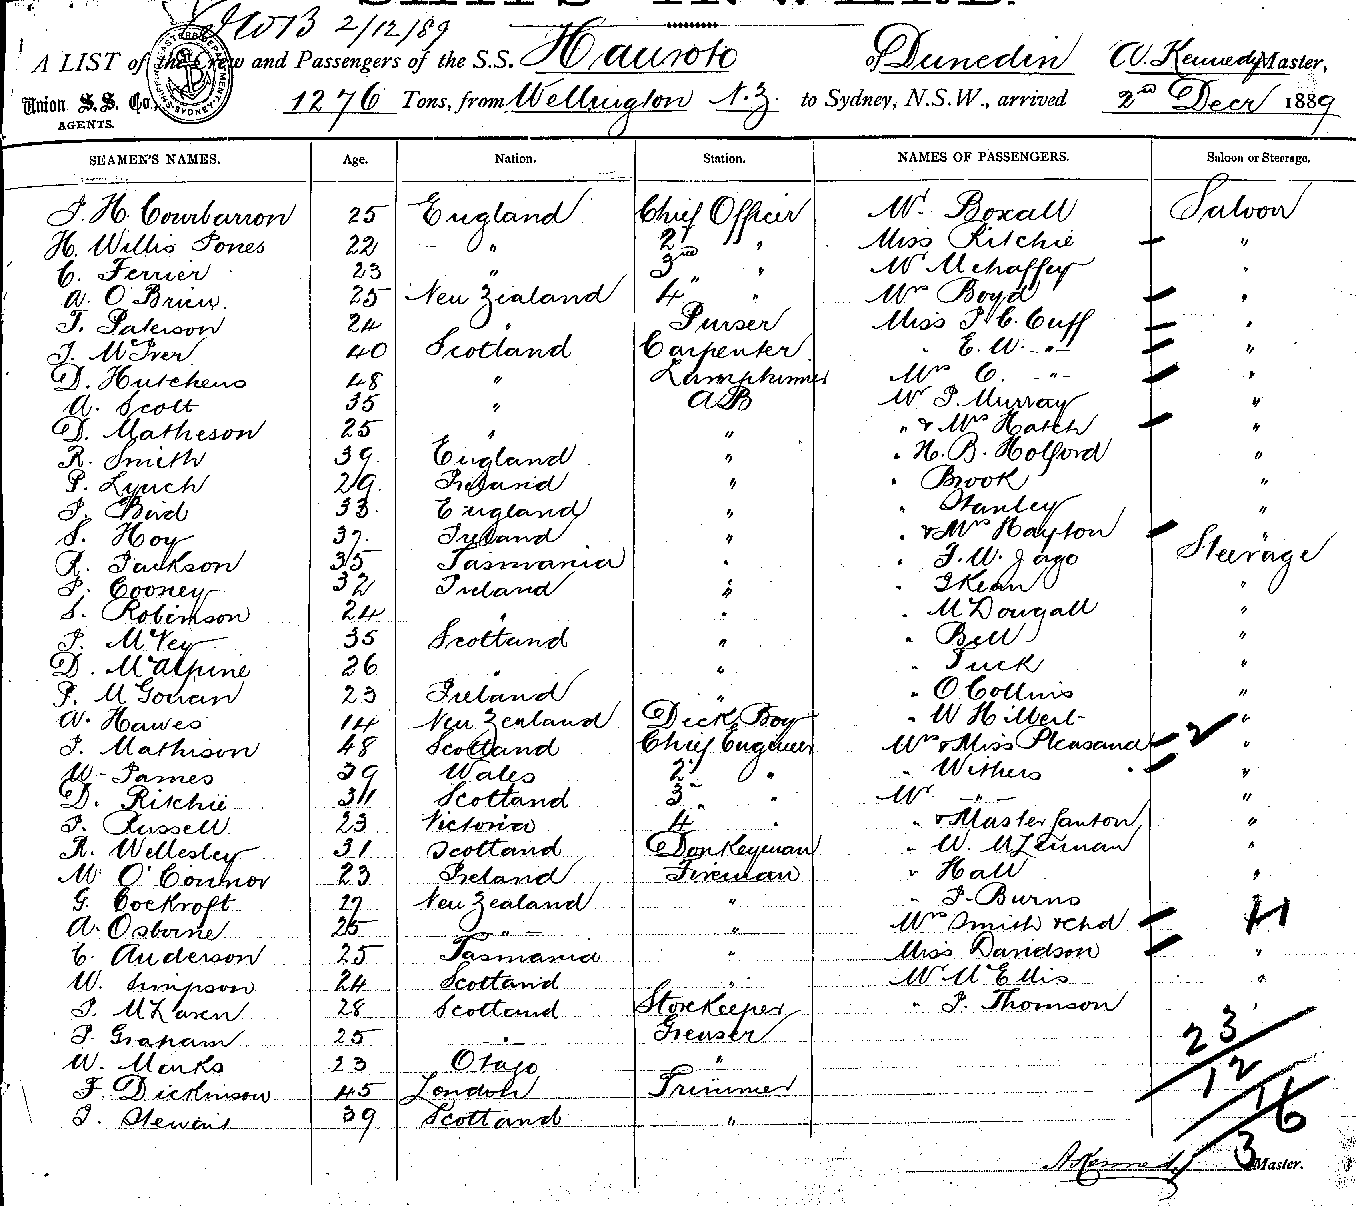 2/12/89
A LIST of the Crew and Passengers of the S.S. Hauroto of Dunedin W. Kennedy Master,
Union S.S. Co. 1276 Tons, from Wellington N.Z. to Sydney, N.S.W., arrived 2nd Decr 1889
AGENTS.
SEAMEN'S NAMES. Age. Nation. Station. NAMES OF PASSENGERS. Saloon or Steerage.
J. H. Courbarron 25 England Chief Officer Mr. Boxall Saloon
H. Willis Jones 22 " 2d " Miss Ritchie "
C. Ferrier 23 " 3rd " Mr Mehaffey "
A. O'Brien 25 New Zealand 4" " Mrs Boyd "
T. Paterson 24 " Purser Miss J. C. Cuff "
J. McIver 40 Scotland Carpenter " E. W. " "
D. Hutchens 48 " Lamptrimmer Mrs C. " "
A. Scott 35 " AB Mr J. Murray "
D. Matheson 25 " " " & Mrs Hatch "
R. Smith 39 England " " H. B. Holford "
P. Lynch 29 Ireland " " Brook "
J. Bird 33 England " " Stanley "
S. Hoy 37 Ireland " " & Mrs Hayton "
R. Jackson 35 Tasmania " " J. W. Jago Steerage
P. Cooney 32 Ireland " " Kean "
S. Robinson 24 " " " McDougall "
J. McVey 35 Scotland " " Bell "
D. McAlpine 26 " " " Tuck "
P. McGowan 23 Ireland " " O Collins "
A. Hawes 14 New Zealand Deck Boy " W Hilbert "
J. Mathison 48 Scotland Chief Engineer Mrs & Miss Pleasand 2 "
W. James 39 Wales 2d " " Withers "
D. Ritchie 34 Scotland 3 " Mr " "
J. Russell 23 Victoria 4 " " & Master "
R. Wellesley 31 Scotland Donkeyman " W. McLennan "
M O'Connor 23 Ireland Fireman " Hall "
G. Cockroft 27 New Zealand " " J. Burns
A. Osborne 25 " " Mrs Smith & Chd
C. Anderson 25 Tasmania " Miss Davidson "
W. Simpson 24 Scotland " Mr McEllis "
J. McLaren 28 Scotland Storekeeper " J. Thomson "
P. Graham 25 " Greaser 23
W. Menks 23 Otago " 12
F. Dickinson 45 London Trimmer 16
J. Stewart 39 Scotland " 3
Master.